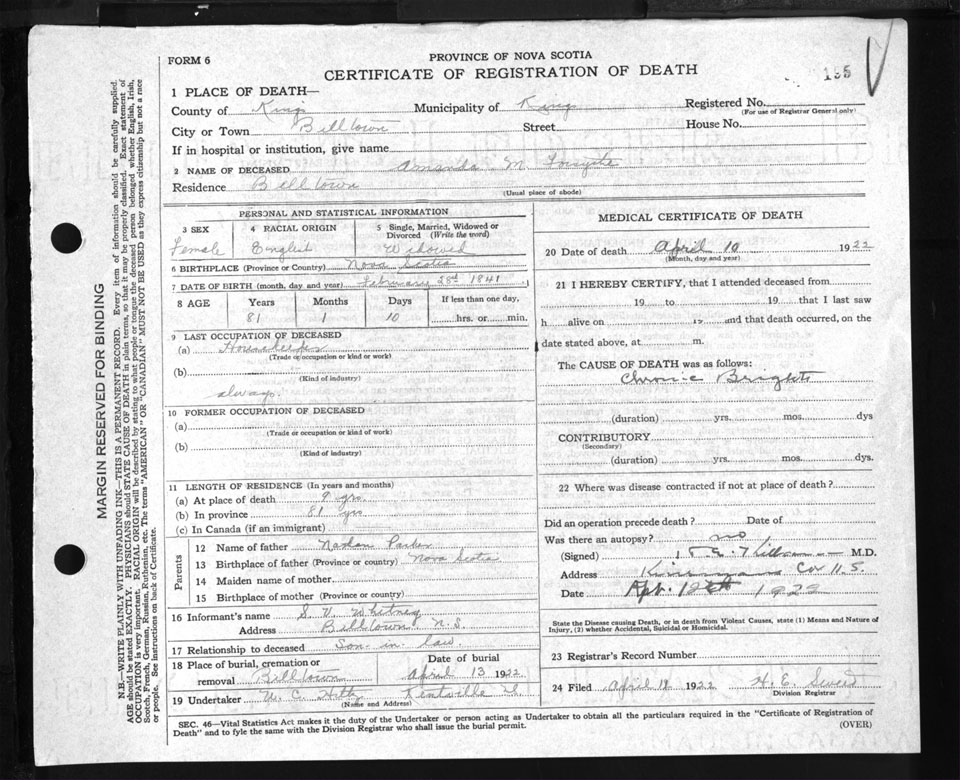 FORM 6
PROVINCE OF NOVA SCOTIA
CERTIFICATE OF REGISTRATION OF DEATH
195
1 PLACE OF DEATH—
County of Kings Municipality of Kings Registered No.
(For use of Registrar General only)
City or Town Billtown Street House No.
If in hospital or institution, give name
2 NAME OF DECEASED Amanda M. Forsythe
Residence Billtown
(Usual place of abode)
PERSONAL AND STATISTICAL INFORMATION
3 SEX 4 RACIAL ORIGIN 5 Single, Married, Widowed or Divorced (Write the word)
Female English Widowed
6 BIRTHPLACE (Province or Country) Nova Scotia
7 DATE OF BIRTH (month, day and year) February 28th 1841
8 AGE Years Months Days If less than one day,
81 1 10 hrs. or min.
9 LAST OCCUPATION OF DECEASED
(a) Housekeeper
(Trade or occupation or kind or work)
(b)
(Kind of industry)
always.
10 FORMER OCCUPATION OF DECEASED
(a)
(Trade or occupation or kind of work)
(b)
(Kind of industry)
11 LENGTH OF RESIDENCE (In years and months)
(a) At place of death 9 yrs.
(b) In province 81 yrs
(c) In Canada (if an immigrant)
Parents
12 Name of father Parker
13 Birthplace of father (Province or country) Nova Scotia
14 Maiden name of mother
15 Birthplace of mother (Province or country)
16 Informant's name S. V. Whitney
Address Billtown N.S.
17 Relationship to deceased Son in law
18 Place of burial, cremation or removal Billtown
Date of burial April 13 1922
19 Undertaker W. C.
(Name and Address)
MEDICAL CERTIFICATE OF DEATH
20 Date of death April 10 1922
(Month, day and year)
21 I HEREBY CERTIFY, that I attended deceased from
19 to 19 that I last saw
h alive on 19 and that death occurred, on the
date stated above, at m.
The CAUSE OF DEATH was as follows:
Chronic Brights
(duration) yrs. mos. dys
CONTRIBUTORY
(Secondary)
(duration) yrs. mos. dys.
22 Where was disease contracted if not at place of death?
Did an operation precede death? Date of
Was there an autopsy? no
(Signed) M.D.
Address
Date Apr. 12th 1922
State the Disease causing Death, or in death from Violent Causes, state (1) Means and Nature of
Injury, (2) whether Accidental, Suicidal or Homicidal.
23 Registrar's Record Number
24 Filed April 1922 H. E.
Division Registrar
SEC. 46—Vital Statistics Act makes it the duty of the Undertaker or person acting as Undertaker to obtain all the particulars required in the "Certificate of Registration of
Death" and to fyle the same with the Division Registrar who shall issue the burial permit. (OVER)
MARGIN RESERVED FOR BINDING
N.B.—WRITE PLAINLY WITH UNFADING INK—THIS IS A PERMANENT RECORD. Every item of information should be carefully supplied.
AGE should be stated EXACTLY. PHYSICIANS should STATE CAUSE OF DEATH in plain terms, so that it may be properly classified. Exact statement of
OCCUPATION is very important. RACIAL ORIGIN will be described by stating to what people or tongue the deceased person belonged whether English, Irish,
Scotch, French, German, Russian, Ruthenian, etc. The terms "AMERICAN" OR "CANADIAN" MUST NOT BE USED as they express citizenship but not a race
or people. See instructions on back of Certificate.